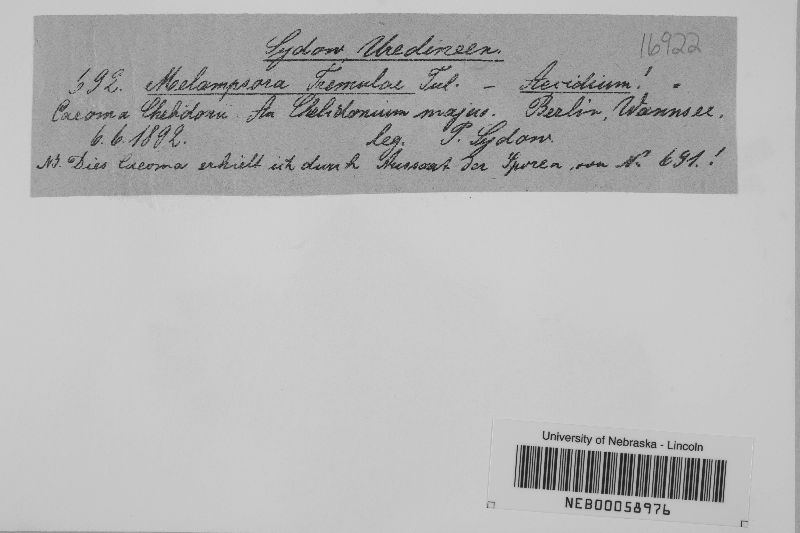 Sydow Uredineen.
16922
692. Melampsora Tremulae Tul. – Aecidium! =
Caeoma Chelidonii. An Chelidonium majus. Berlin, Wannsee.
6.6.1892. leg. P. Sydow.
NB. Dies Caeoma erhielt ich durch Aussaat der Sporen von N° 691.!
University of Nebraska - Lincoln
NEB00058976